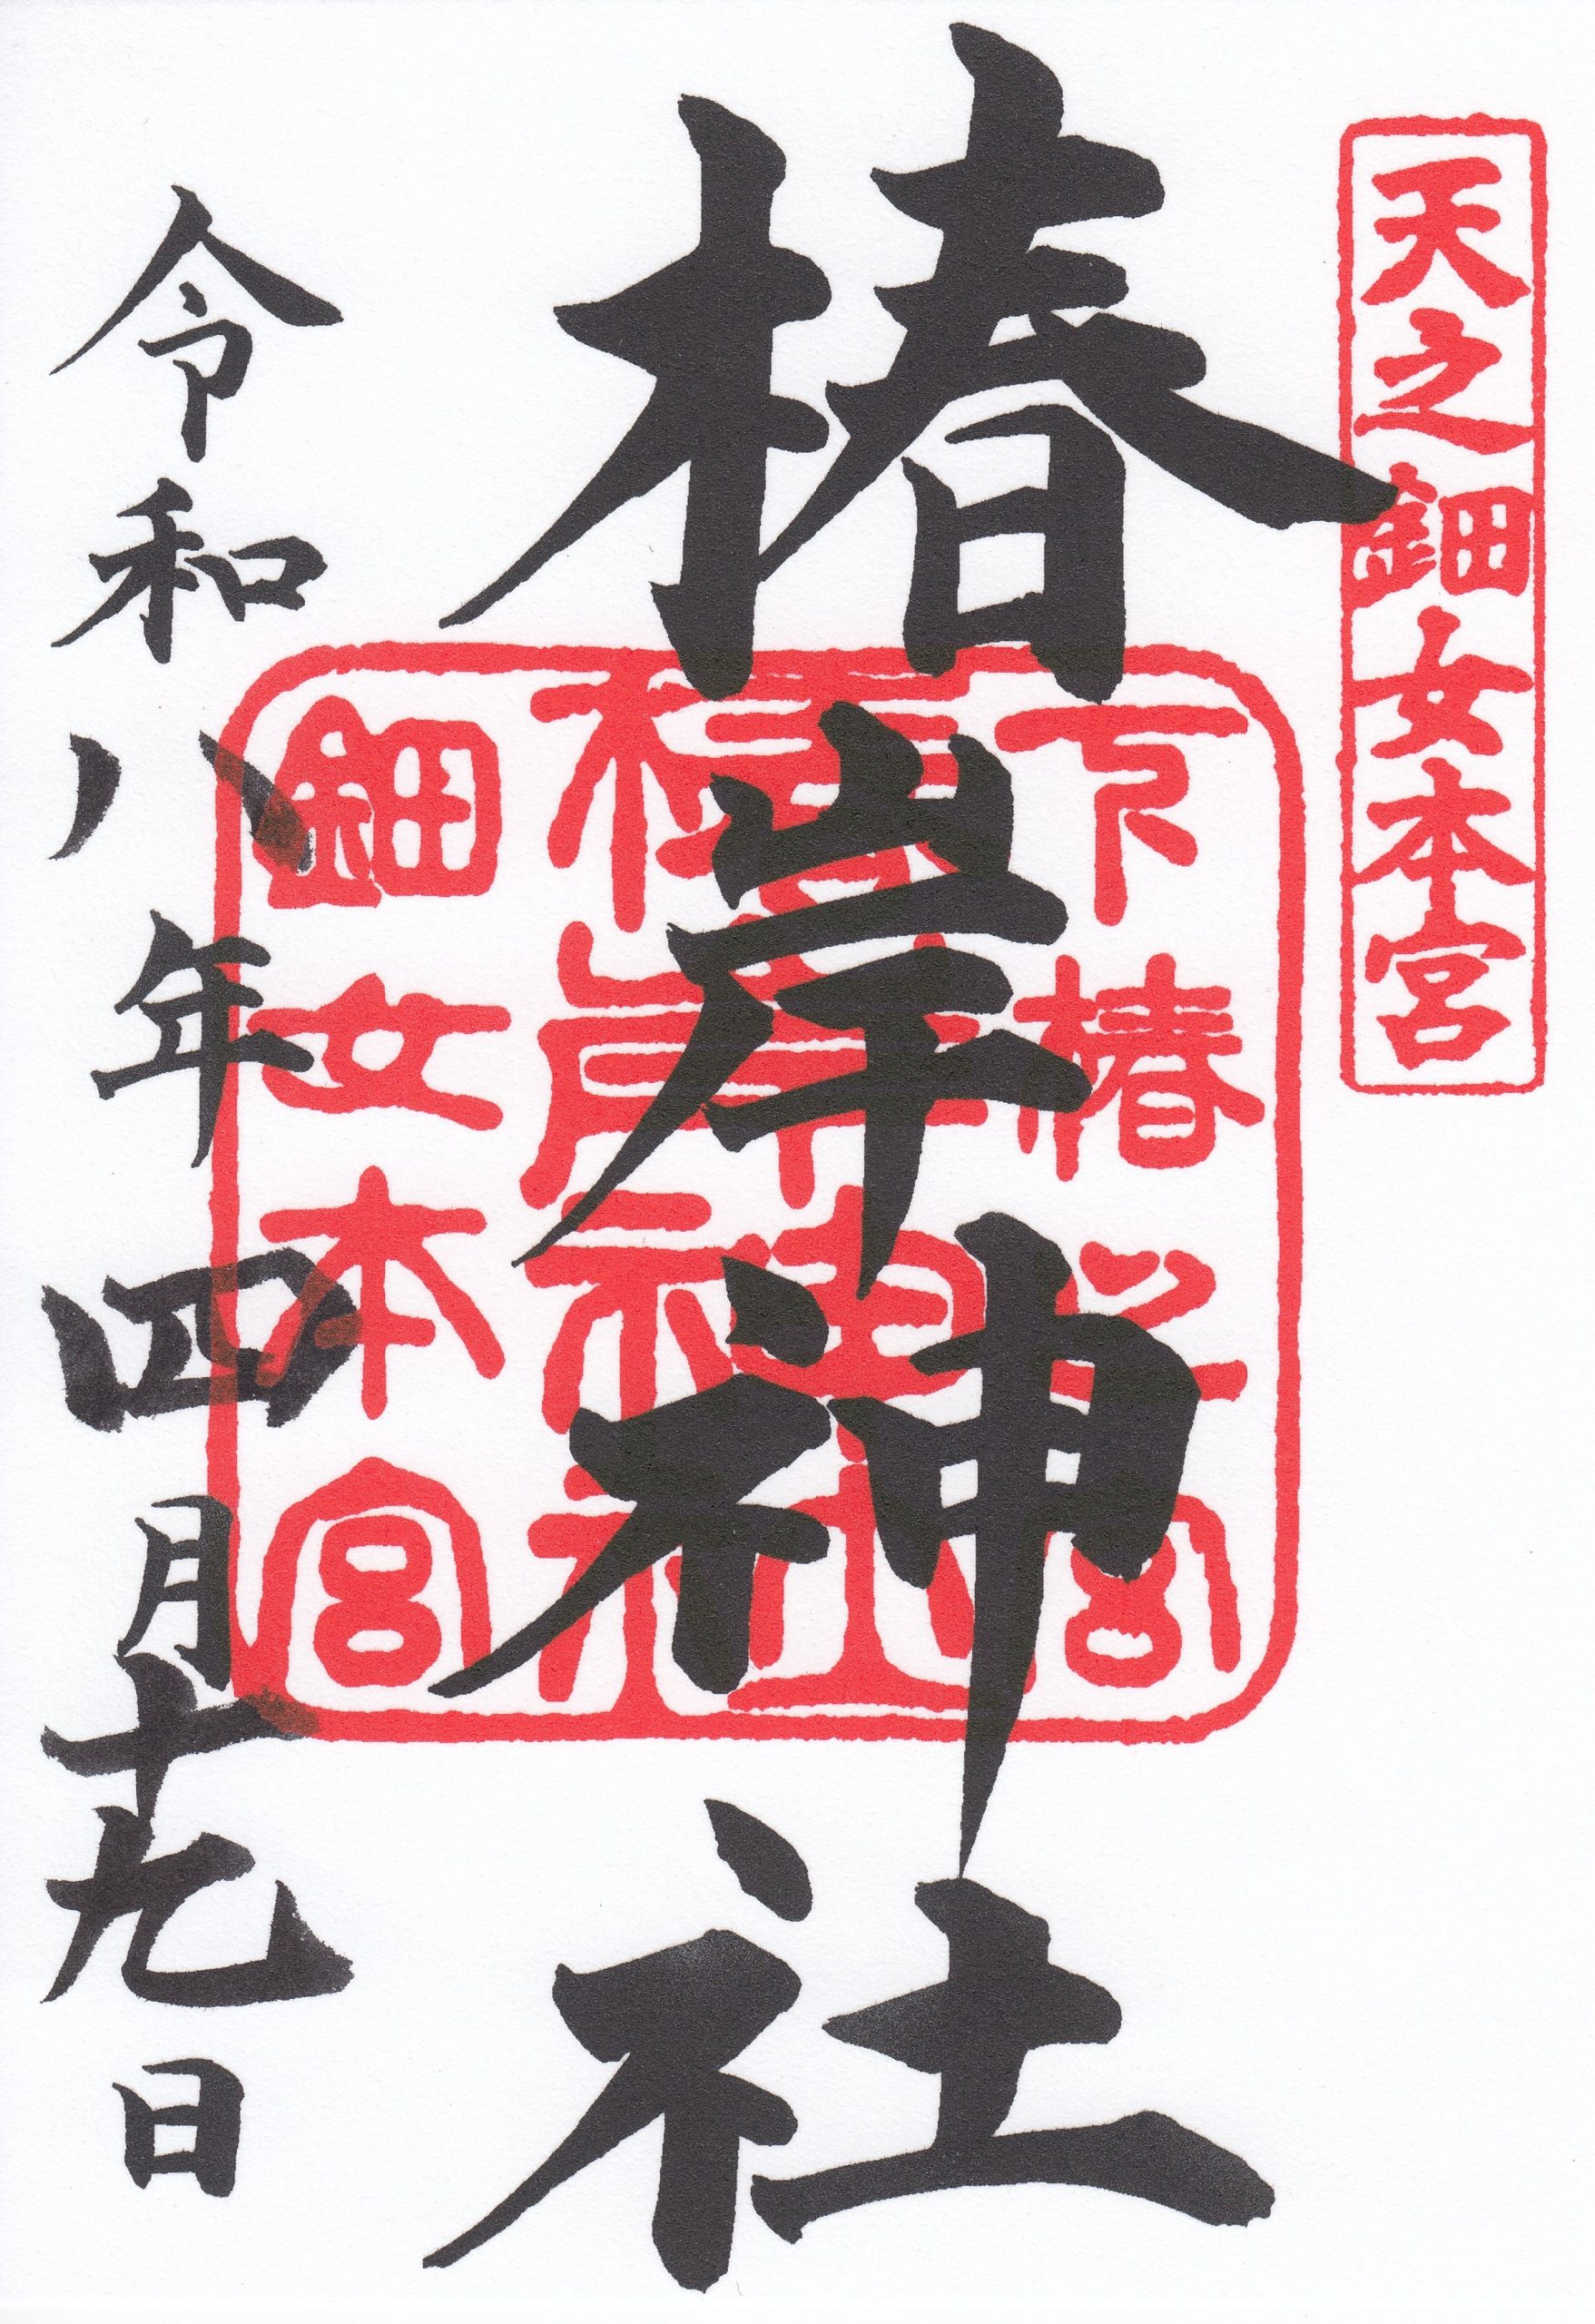 天之鈿女本宮
椿岸神社
下椿之宮
椿岸神社
鈿女本宮
令和八年四月十九日